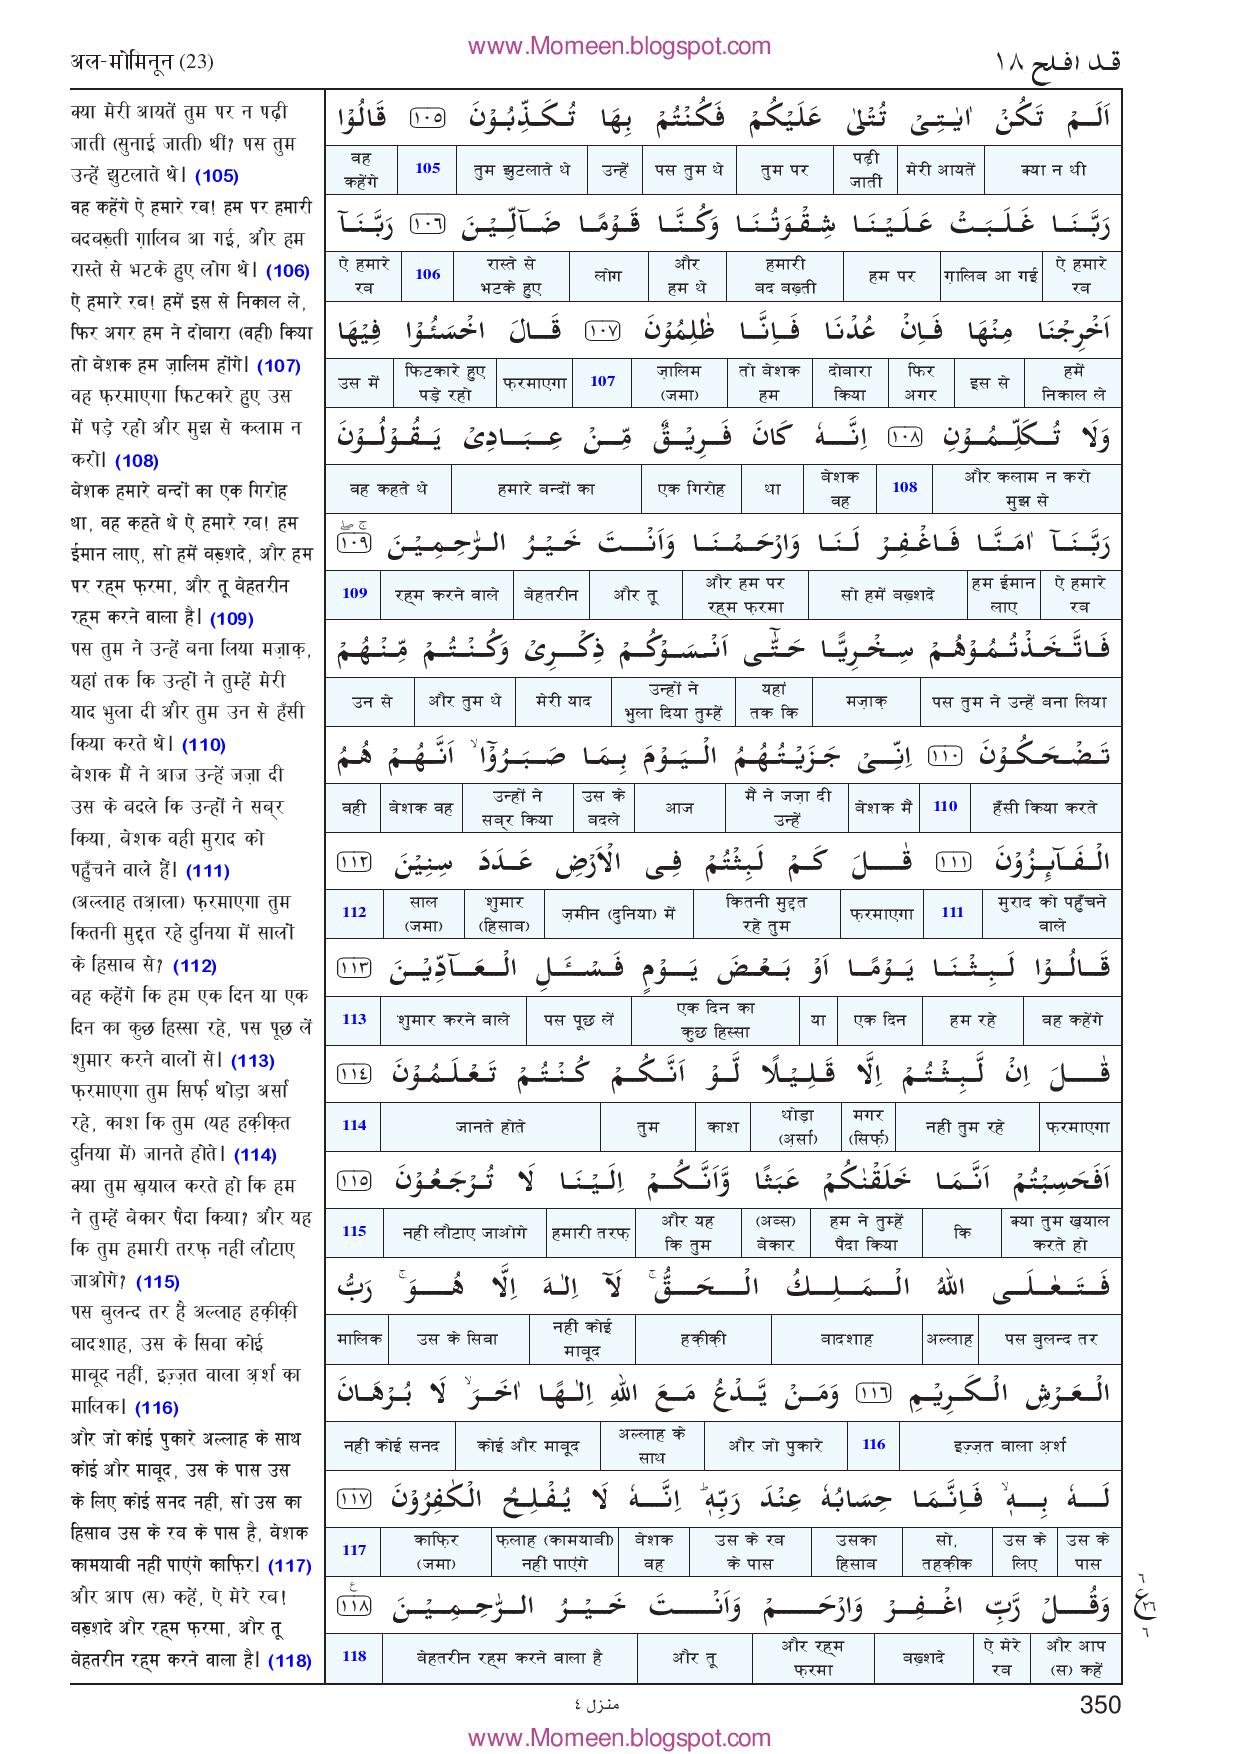 www.Momeen.blogspot.com
अल-मोमिनून (23)
قد افلح ١٨
क्या मेरी आयतें तुम पर न पढ़ी
जाती (सुनाई जाती) थीं? पस तुम
उन्हें झुटलाते थे। (105)
वह कहेंगे ऐ हमारे रब! हम पर हमारी
बदबख़्ती ग़ालिब आ गई, और हम
रास्ते से भटके हुए लोग थे। (106)
ऐ हमारे रब! हमें इस से निकाल ले,
फिर अगर हम ने दोबारा (वही) किया
तो बेशक हम ज़ालिम होंगे। (107)
वह फ़रमाएगा फिटकारे हुए उस
में पड़े रहो और मुझ से कलाम न
करो। (108)
बेशक हमारे बन्दों का एक गिरोह
था, वह कहते थे ऐ हमारे रब! हम
ईमान लाए, सो हमें बख़्शदे, और हम
पर रह्म फ़रमा, और तू बेहतरीन
रह्म करने वाला है। (109)
पस तुम ने उन्हें बना लिया मज़ाक़,
यहां तक कि उन्हों ने तुम्हें मेरी
याद भुला दी और तुम उन से हँसी
किया करते थे। (110)
बेशक मैं ने आज उन्हें जज़ा दी
उस के बदले कि उन्हों ने सब्र
किया, बेशक वही मुराद को
पहुँचने वाले हैं। (111)
(अल्लाह तआ़ला) फ़रमाएगा तुम
कितनी मुद्दत रहे दुनिया में सालों
के हिसाब से? (112)
वह कहेंगे कि हम एक दिन या एक
दिन का कुछ हिस्सा रहे, पस पूछ लें
शुमार करने वालों से। (113)
फ़रमाएगा तुम सिर्फ़ थोड़ा अर्सा
रहे, काश कि तुम (यह हक़ीक़त
दुनिया में) जानते होते। (114)
क्या तुम ख़याल करते हो कि हम
ने तुम्हें बेकार पैदा किया? और यह
कि तुम हमारी तरफ़ नहीं लौटाए
जाओगे? (115)
पस बुलन्द तर है अल्लाह हक़ीक़ी
बादशाह, उस के सिवा कोई
माबूद नहीं, इज़्ज़त वाला अ़र्श का
मालिक। (116)
और जो कोई पुकारे अल्लाह के साथ
कोई और माबूद, उस के पास उस
के लिए कोई सनद नहीं, सो उस का
हिसाब उस के रब के पास है, बेशक
कामयाबी नहीं पाएंगे काफ़िर। (117)
और आप (स) कहें, ऐ मेरे रब!
बख़्शदे और रह्म फ़रमा, और तू
बेहतरीन रह्म करने वाला है। (118)
اَلَمْ تَكُنْ اٰيٰتِىْ تُتْلٰى عَلَيْكُمْ فَكُنْتُمْ بِهَا تُكَذِّبُوْنَ ١٠٥ قَالُوْا
क्या न थी मेरी आयतें पढ़ी जाती तुम पर पस तुम थे उन्हें तुम झुटलाते थे 105 वह कहेंगे
رَبَّنَا غَلَبَتْ عَلَيْنَا شِقْوَتُنَا وَكُنَّا قَوْمًا ضَآلِّيْنَ ١٠٦ رَبَّنَآ
ऐ हमारे रब ग़ालिब आ गई हम पर हमारी बद बख़्ती और हम थे लोग रास्ते से भटके हुए 106 ऐ हमारे रब
اَخْرِجْنَا مِنْهَا فَاِنْ عُدْنَا فَاِنَّا ظٰلِمُوْنَ ١٠٧ قَالَ اخْسَئُوْا فِيْهَا
हमें निकाल ले इस से फिर अगर दोबारा किया तो बेशक हम ज़ालिम (जमा) 107 फ़रमाएगा फिटकारे हुए पड़े रहो उस में
وَلَا تُكَلِّمُوْنِ ١٠٨ اِنَّهٗ كَانَ فَرِيْقٌ مِّنْ عِبَادِىْ يَقُوْلُوْنَ
और कलाम न करो मुझ से 108 बेशक वह था एक गिरोह हमारे बन्दों का वह कहते थे
رَبَّنَآ اٰمَنَّا فَاغْفِرْ لَنَا وَارْحَمْنَا وَاَنْتَ خَيْرُ الرّٰحِمِيْنَ ١٠٩
ऐ हमारे रब हम ईमान लाए सो हमें बख़्शदे और हम पर रह्म फ़रमा और तू बेहतरीन रह्म करने वाले 109
فَاتَّخَذْتُمُوْهُمْ سِخْرِيًّا حَتّٰٓى اَنْسَوْكُمْ ذِكْرِىْ وَكُنْتُمْ مِّنْهُمْ
पस तुम ने उन्हें बना लिया मज़ाक़ यहां तक कि उन्हों ने भुला दिया तुम्हें मेरी याद और तुम थे उन से
تَضْحَكُوْنَ ١١٠ اِنِّىْ جَزَيْتُهُمُ الْيَوْمَ بِمَا صَبَرُوْٓا ۙ اَنَّهُمْ هُمُ
हँसी किया करते 110 बेशक मैं मैं ने जज़ा दी उन्हें आज उस के बदले उन्हों ने सब्र किया बेशक वह वही
الْفَآىِٕزُوْنَ ١١١ قٰلَ كَمْ لَبِثْتُمْ فِى الْاَرْضِ عَدَدَ سِنِيْنَ ١١٢
मुराद को पहुँचने वाले 111 फ़रमाएगा कितनी मुद्दत रहे तुम ज़मीन (दुनिया) में शुमार (हिसाब) साल (जमा) 112
قَالُوْا لَبِثْنَا يَوْمًا اَوْ بَعْضَ يَوْمٍ فَسْـَٔلِ الْعَآدِّيْنَ ١١٣
वह कहेंगे हम रहे एक दिन या एक दिन का कुछ हिस्सा पस पूछ लें शुमार करने वाले 113
قٰلَ اِنْ لَّبِثْتُمْ اِلَّا قَلِيْلًا لَّوْ اَنَّكُمْ كُنْتُمْ تَعْلَمُوْنَ ١١٤
फ़रमाएगा नहीं तुम रहे मगर (सिर्फ़) थोड़ा (अ़र्सा) काश तुम जानते होते 114
اَفَحَسِبْتُمْ اَنَّمَا خَلَقْنٰكُمْ عَبَثًا وَّاَنَّكُمْ اِلَيْنَا لَا تُرْجَعُوْنَ ١١٥
क्या तुम ख़याल करते हो कि हम ने तुम्हें पैदा किया (अ़बस) बेकार और यह कि तुम हमारी तरफ़ नहीं लौटाए जाओगे 115
فَتَعٰلَى اللّٰهُ الْمَلِكُ الْحَقُّ ۚ لَآ اِلٰهَ اِلَّا هُوَ ۚ رَبُّ
पस बुलन्द तर अल्लाह बादशाह हक़ीक़ी नहीं कोई माबूद उस के सिवा मालिक
الْعَرْشِ الْكَرِيْمِ ١١٦ وَمَنْ يَّدْعُ مَعَ اللّٰهِ اِلٰهًا اٰخَرَ ۙ لَا بُرْهَانَ
इज़्ज़त वाला अ़र्श 116 और जो पुकारे अल्लाह के साथ कोई और माबूद नहीं कोई सनद
لَهٗ بِهٖ ۙ فَاِنَّمَا حِسَابُهٗ عِنْدَ رَبِّهٖ ؕ اِنَّهٗ لَا يُفْلِحُ الْكٰفِرُوْنَ ١١٧
उस के पास उस के लिए सो, तहक़ीक़ उसका हिसाब उस के रब के पास बेशक वह फ़लाह (कामयाबी) नहीं पाएंगे काफ़िर (जमा) 117
وَقُلْ رَّبِّ اغْفِرْ وَارْحَمْ وَاَنْتَ خَيْرُ الرّٰحِمِيْنَ ١١٨
और आप (स) कहें ऐ मेरे रब बख़्शदे और रह्म फ़रमा और तू बेहतरीन रह्म करने वाला है 118
٦
ع
٢٦
٦
منزل ٤
350
www.Momeen.blogspot.com